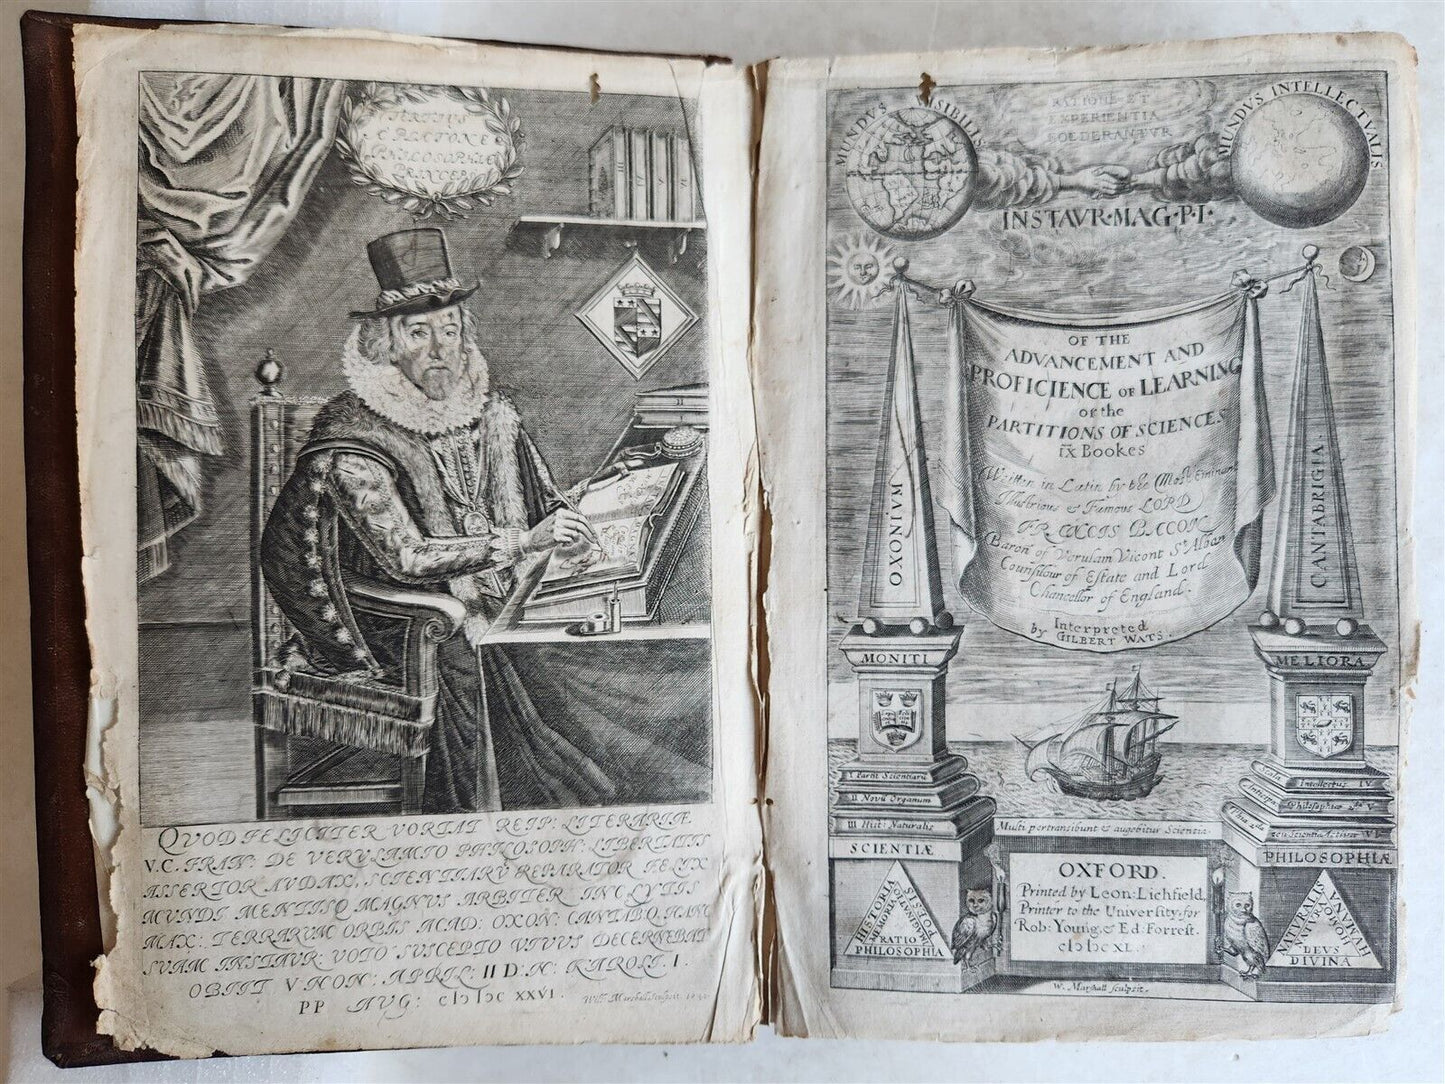 TERTIVS
A PLATONE
PHILOSOPHIÆ
PRINCEPS
QUOD FELICITER VORTAT REIP: LITERARIÆ
V.C. FRAN: DE VERULAMIO PHILOSOPH: LIBERTATIS
ASSERTOR AVDAX, SCIENTIARŪ REPARATOR FELIX
MUNDI MENTISQ MAGNUS ARBITER INCLYTIS
MAX: TERRARUM ORBIS ACAD: OXON: CANTABQ, HANC
SVAM INSTAUR: VOTO SUSCEPTO VIVUS DECERNEBAT
OBIIT V NON: APRIL: II D: N: KAROLI. I.
PP AUG: cIɔ Iɔc XXVI.
Will: Marshall sculpsit
MUNDUS VISIBILIS
RATIONE ET
EXPERIENTIA
FOEDERANTVR
MUNDVS INTELLECTVALIS
INSTAVR·MAG·P·I·
OF THE
ADVANCEMENT AND
PROFICIENCE OF LEARNING
or the
PARTITIONS OF SCIENCES
IX Bookes
Written in Latin by the Most Eminent
Illustrious & Famous LORD
FRANCIS BACON
Baron of Verulam Vicont St Alban
Counsilour of Estate and Lord
Chancellor of England.
Interpreted
by GILBERT WATS.
OXONIVM
CANTABRIGIA.
MONITI
MELIORA
I Partit Scientiarū
II Novū Organum
III Hist: Naturalis
SCIENTIÆ
Scala Intellectus IV
Anticipat Philosophiæ 2æ V
Phi: 2da seu Scientia Activa VI
PHILOSOPHIÆ
Multi pertransibunt & augebitur Scientia
OXFORD.
Printed by Leon: Lichfield,
Printer to the University, for
Rob: Young, & Ed: Forrest.
cIɔ Iɔc XL.
HISTORIA
MEMORIA
POESIS
IMAGINATION
RATIO
PHILOSOPHIA
NATURALIS
HUMANA
HOMO
DEVS
DIVINA
W. Marshall sculpsit.